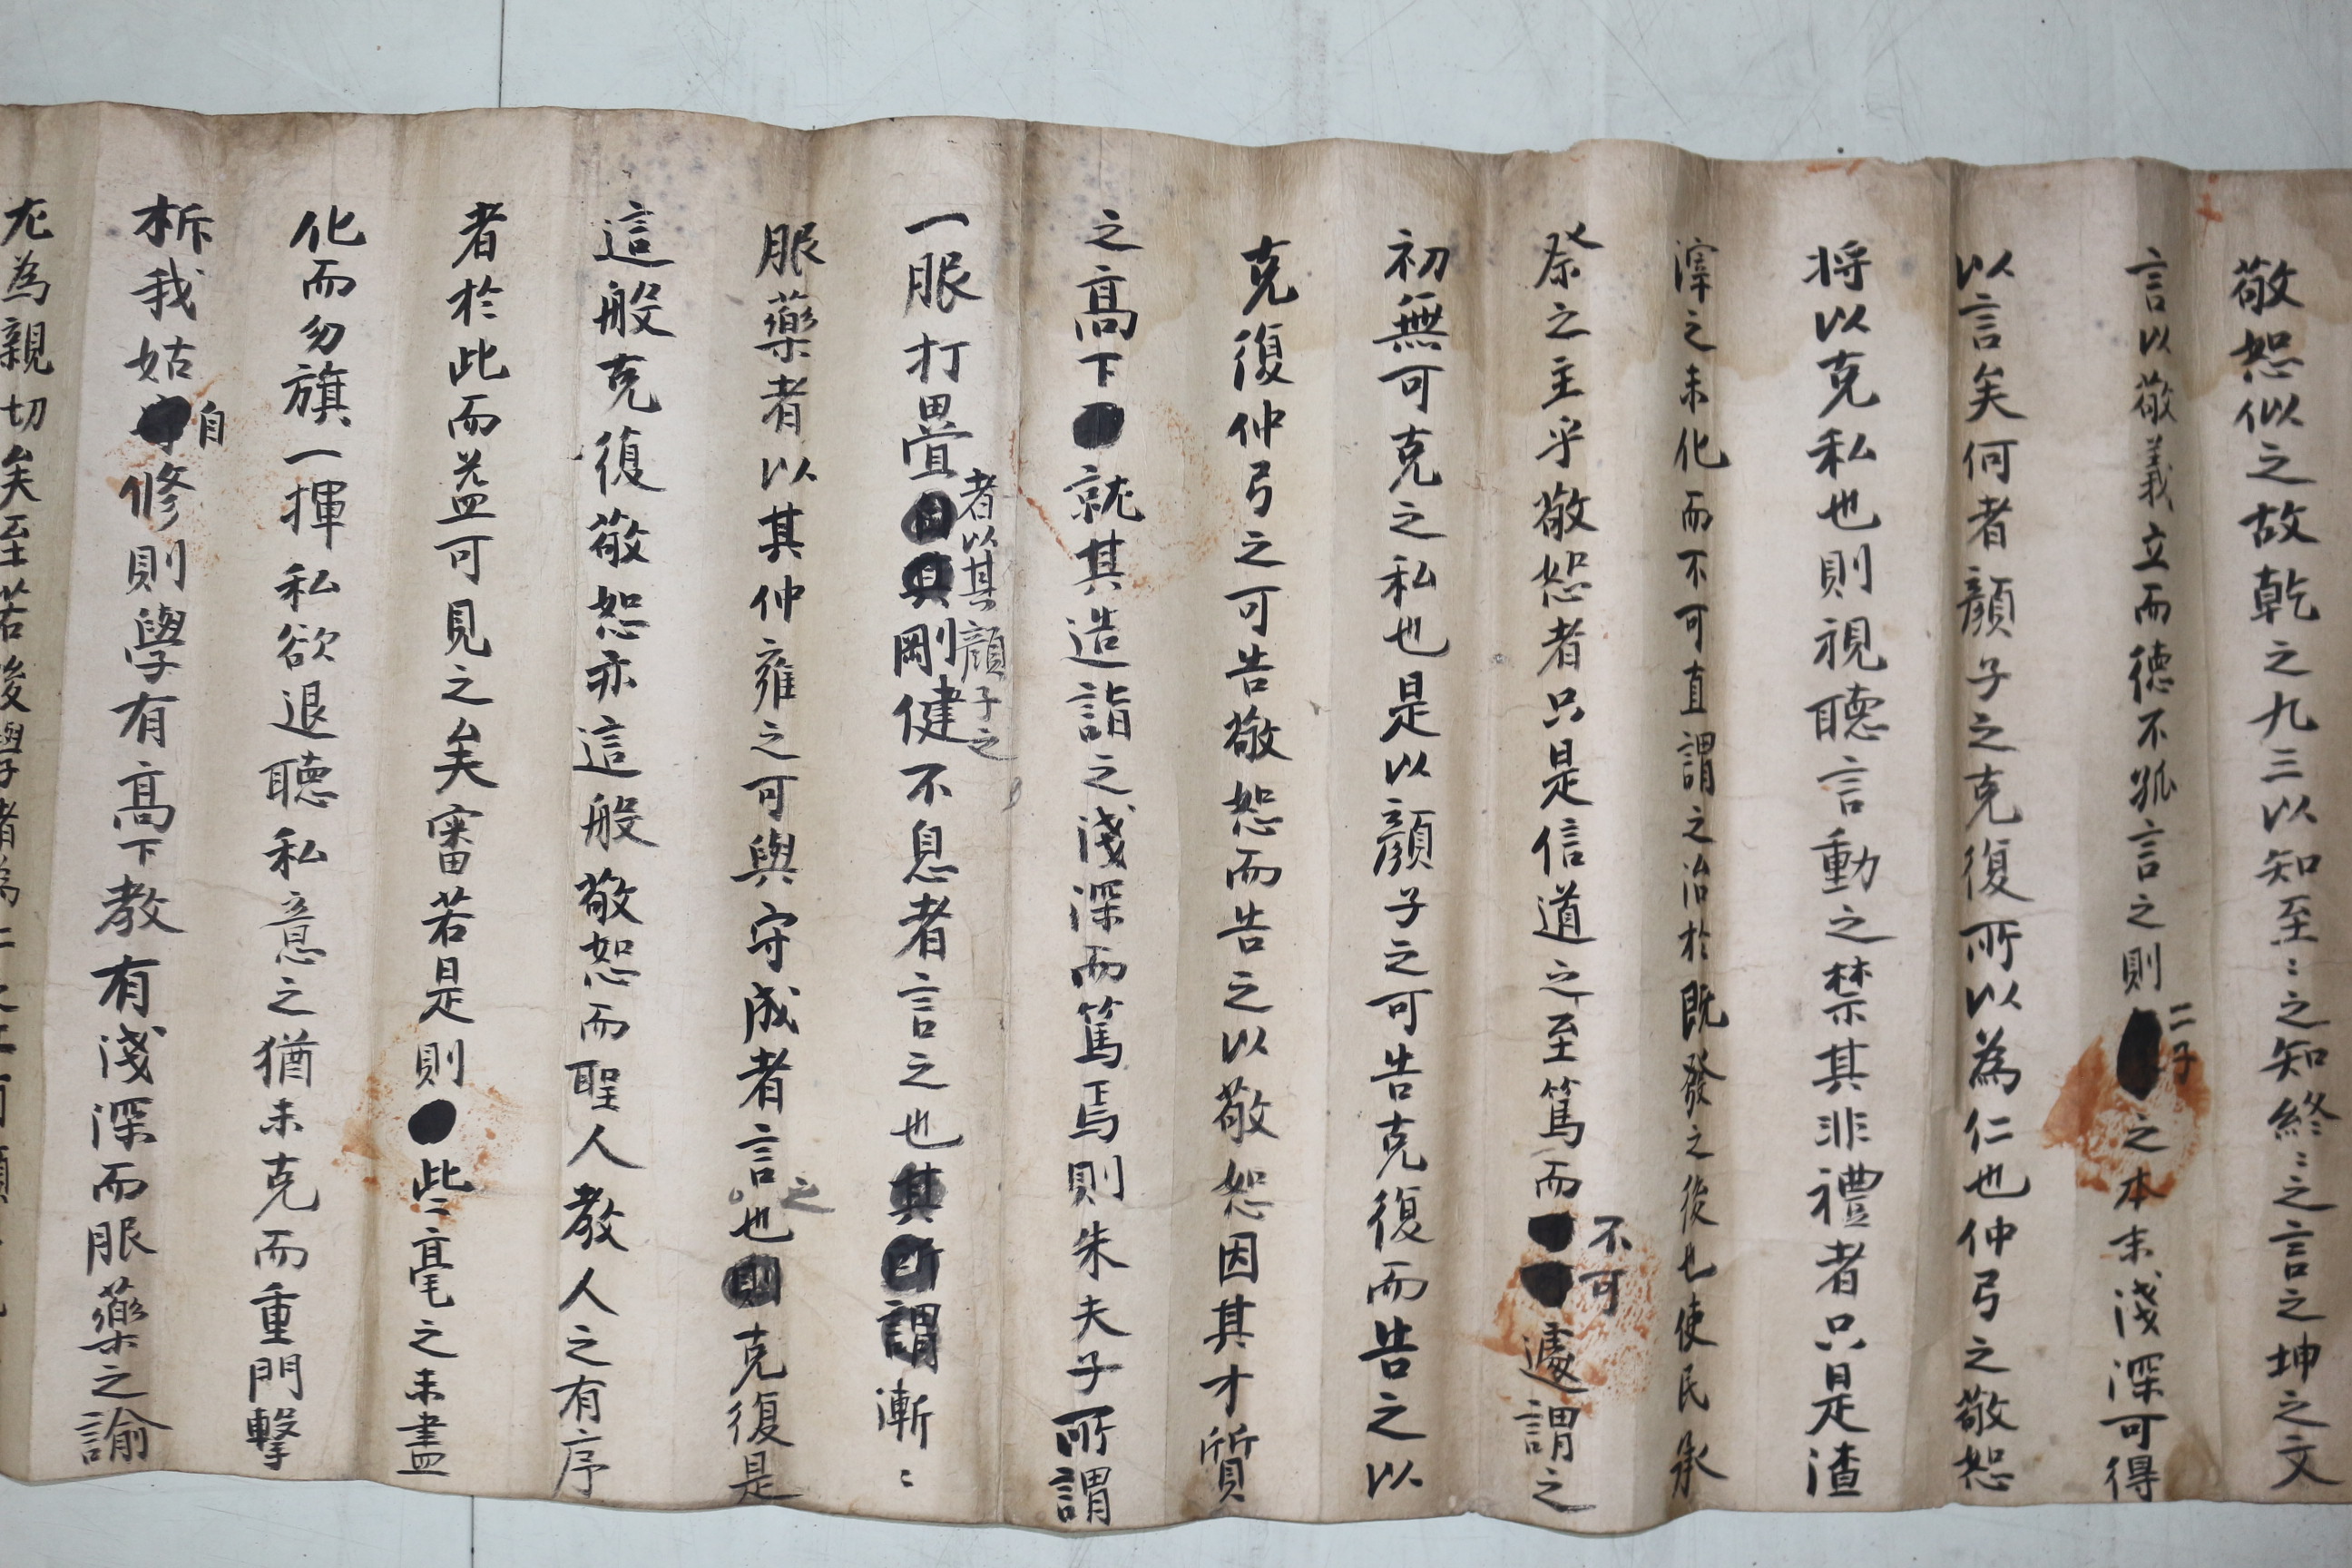 敬恕似之故乾之九三以知至〻之知終〻之言之坤之文
言以敬義立而德不孤言之則二子之本末淺深可得
以言矣何者顔子之克復所以為仁也仲弓之敬恕
將以克私也則視聽言動之禁其非禮者只是渣
滓之未化而不可直謂之治於既發之後也使民承
祭之主乎敬恕者只是信道之至篤而不可遽謂之
初無可克之私也是以顔子之可告克復而告之以
克復仲弓之可告敬恕而告之以敬恕因其才質
之高下就其造詣之淺深而篤焉則朱夫子所謂
一服打疊者以其顔子之剛健不息者言之也漸〻
服藥者以其仲雍之可與守成者言之也克復是
這般克復敬恕亦這般敬恕而聖人敎人之有序
者於此而益可見之矣審若是則此〻毫之未盡
化而勿旗一揮私欲退聽私意之猶未克而重門擊
柝我姑自修則學有高下敎有淺深而服藥之諭
尤為親切矣至若後學者為仁之工